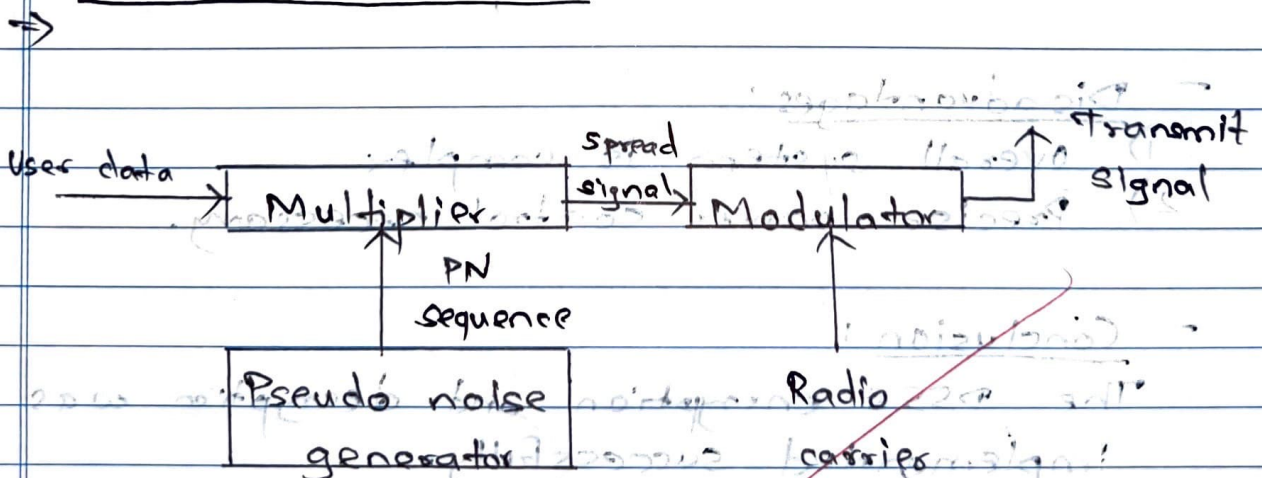 ⇒
User data
Multiplier
spread
signal
Modulator
Transmit
signal
PN
sequence
Pseudo noise
generator
Radio
carrier